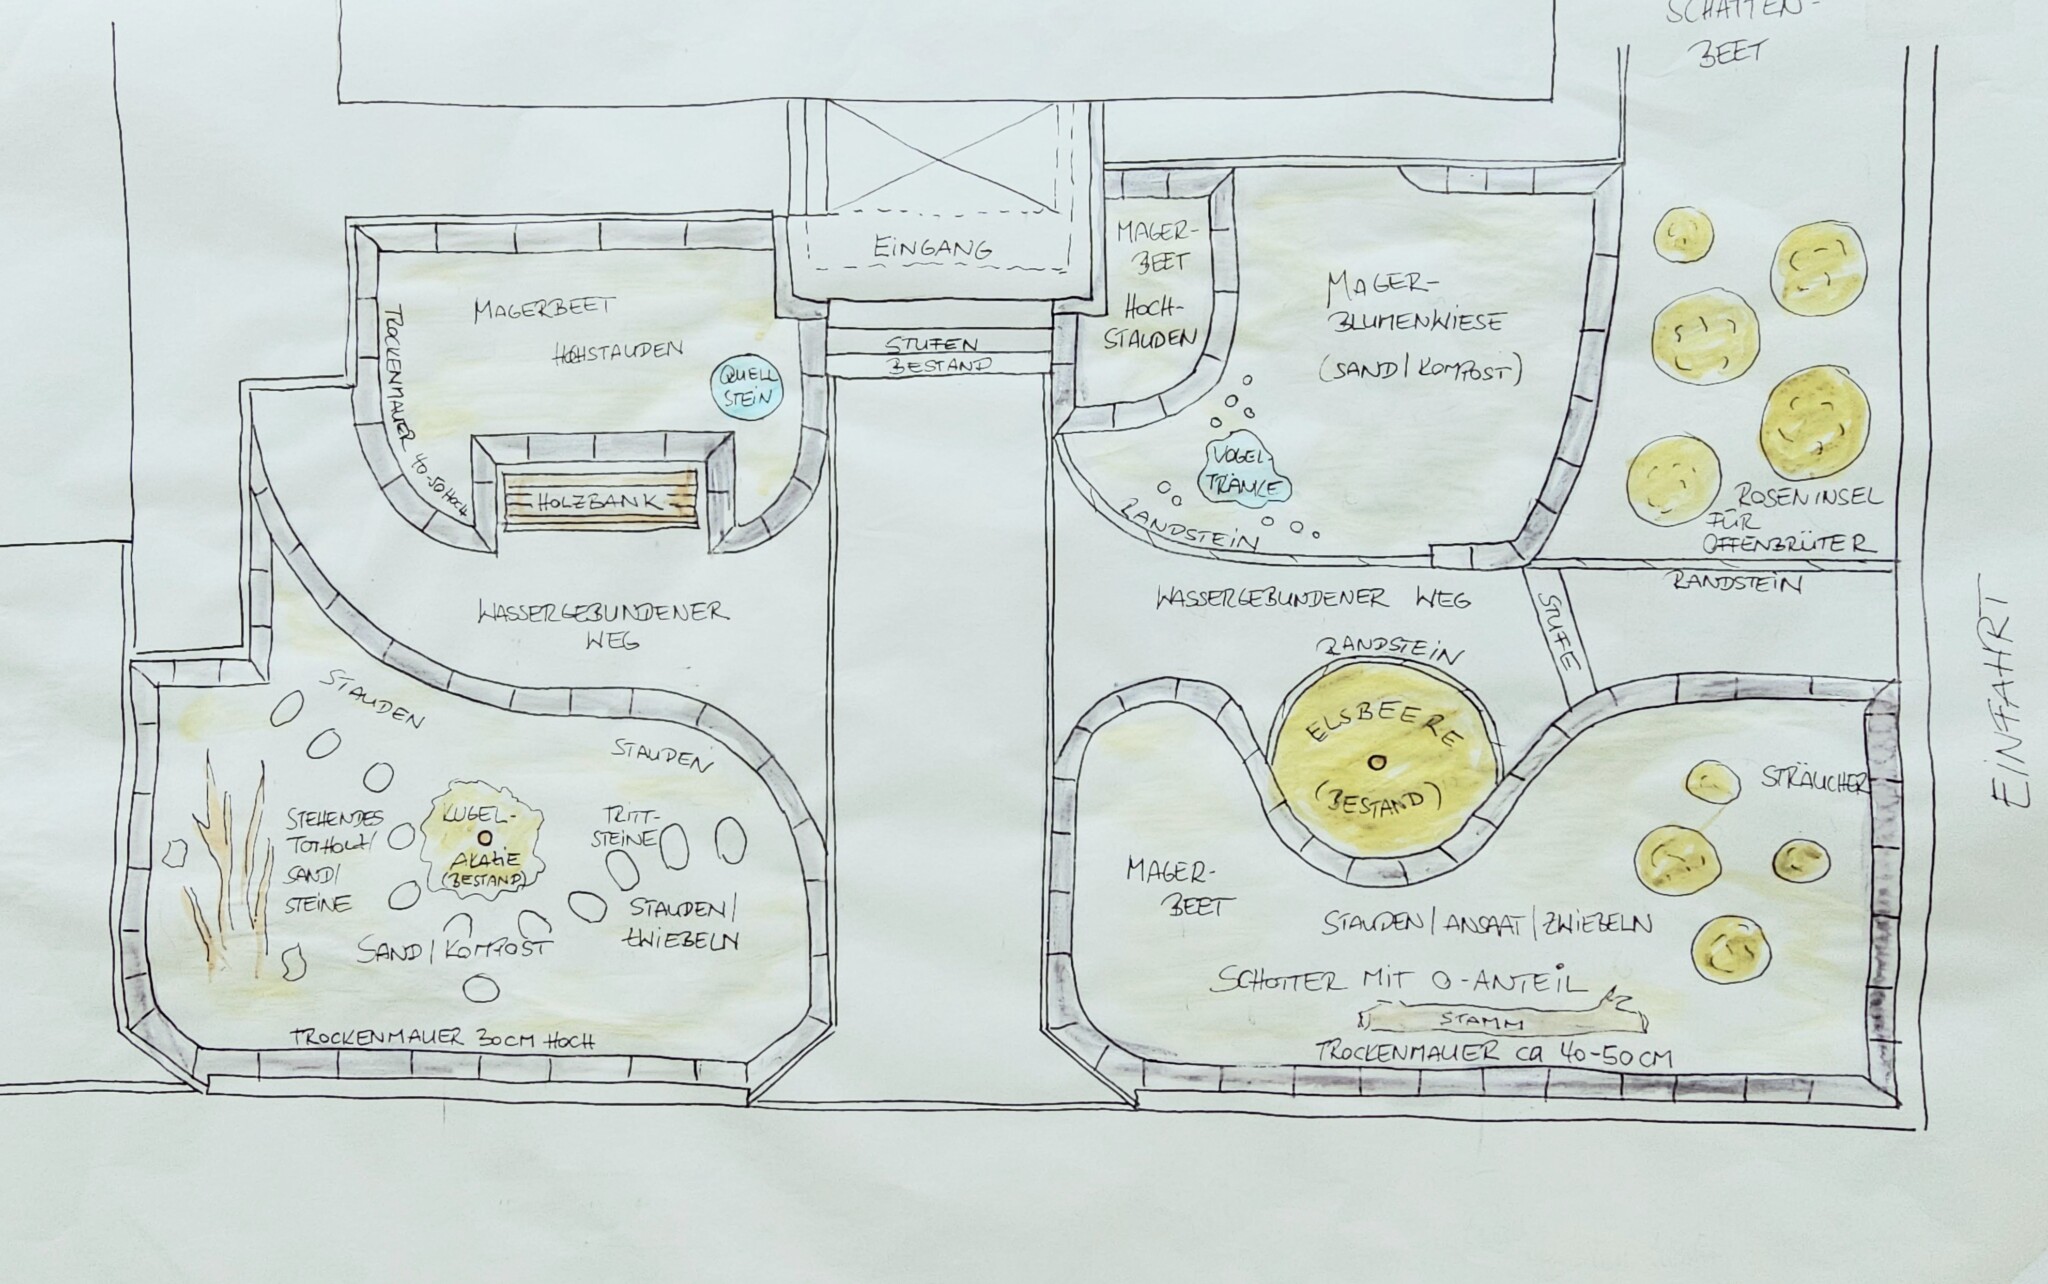 SCHATTEN-
BEET
EINGANG
STUFEN
BESTAND
MAGERBEET
HOCHSTAUDEN
TROCKENMAUER 40-50 HOCH
QUELL
STEIN
HOLZBANK
WASSERGEBUNDENER
WEG
STAUDEN
STAUDEN
STEHENDES
TOTHOLZ/
SAND/
STEINE
KUGEL-
AKAZIE
(BESTAND)
TRITT-
STEINE
STAUDEN/
ZWIEBELN
SAND/KOMPOST
TROCKENMAUER 30CM HOCH
MAGER-
BEET
HOCH-
STAUDEN
MAGER-
BLUMENWIESE
(SAND/KOMPOST)
VOGEL-
TRÄNKE
RANDSTEIN
ROSENINSEL
FÜR
OFFENBRÜTER
RANDSTEIN
WASSERGEBUNDENER WEG
STUFE
RANDSTEIN
ELSBEERE
(BESTAND)
STRÄUCHER
MAGER-
BEET
STAUDEN/ANSAAT/ZWIEBELN
SCHOTTER MIT O-ANTEIL
STAMM
TROCKENMAUER ca 40-50CM
EINFAHRT